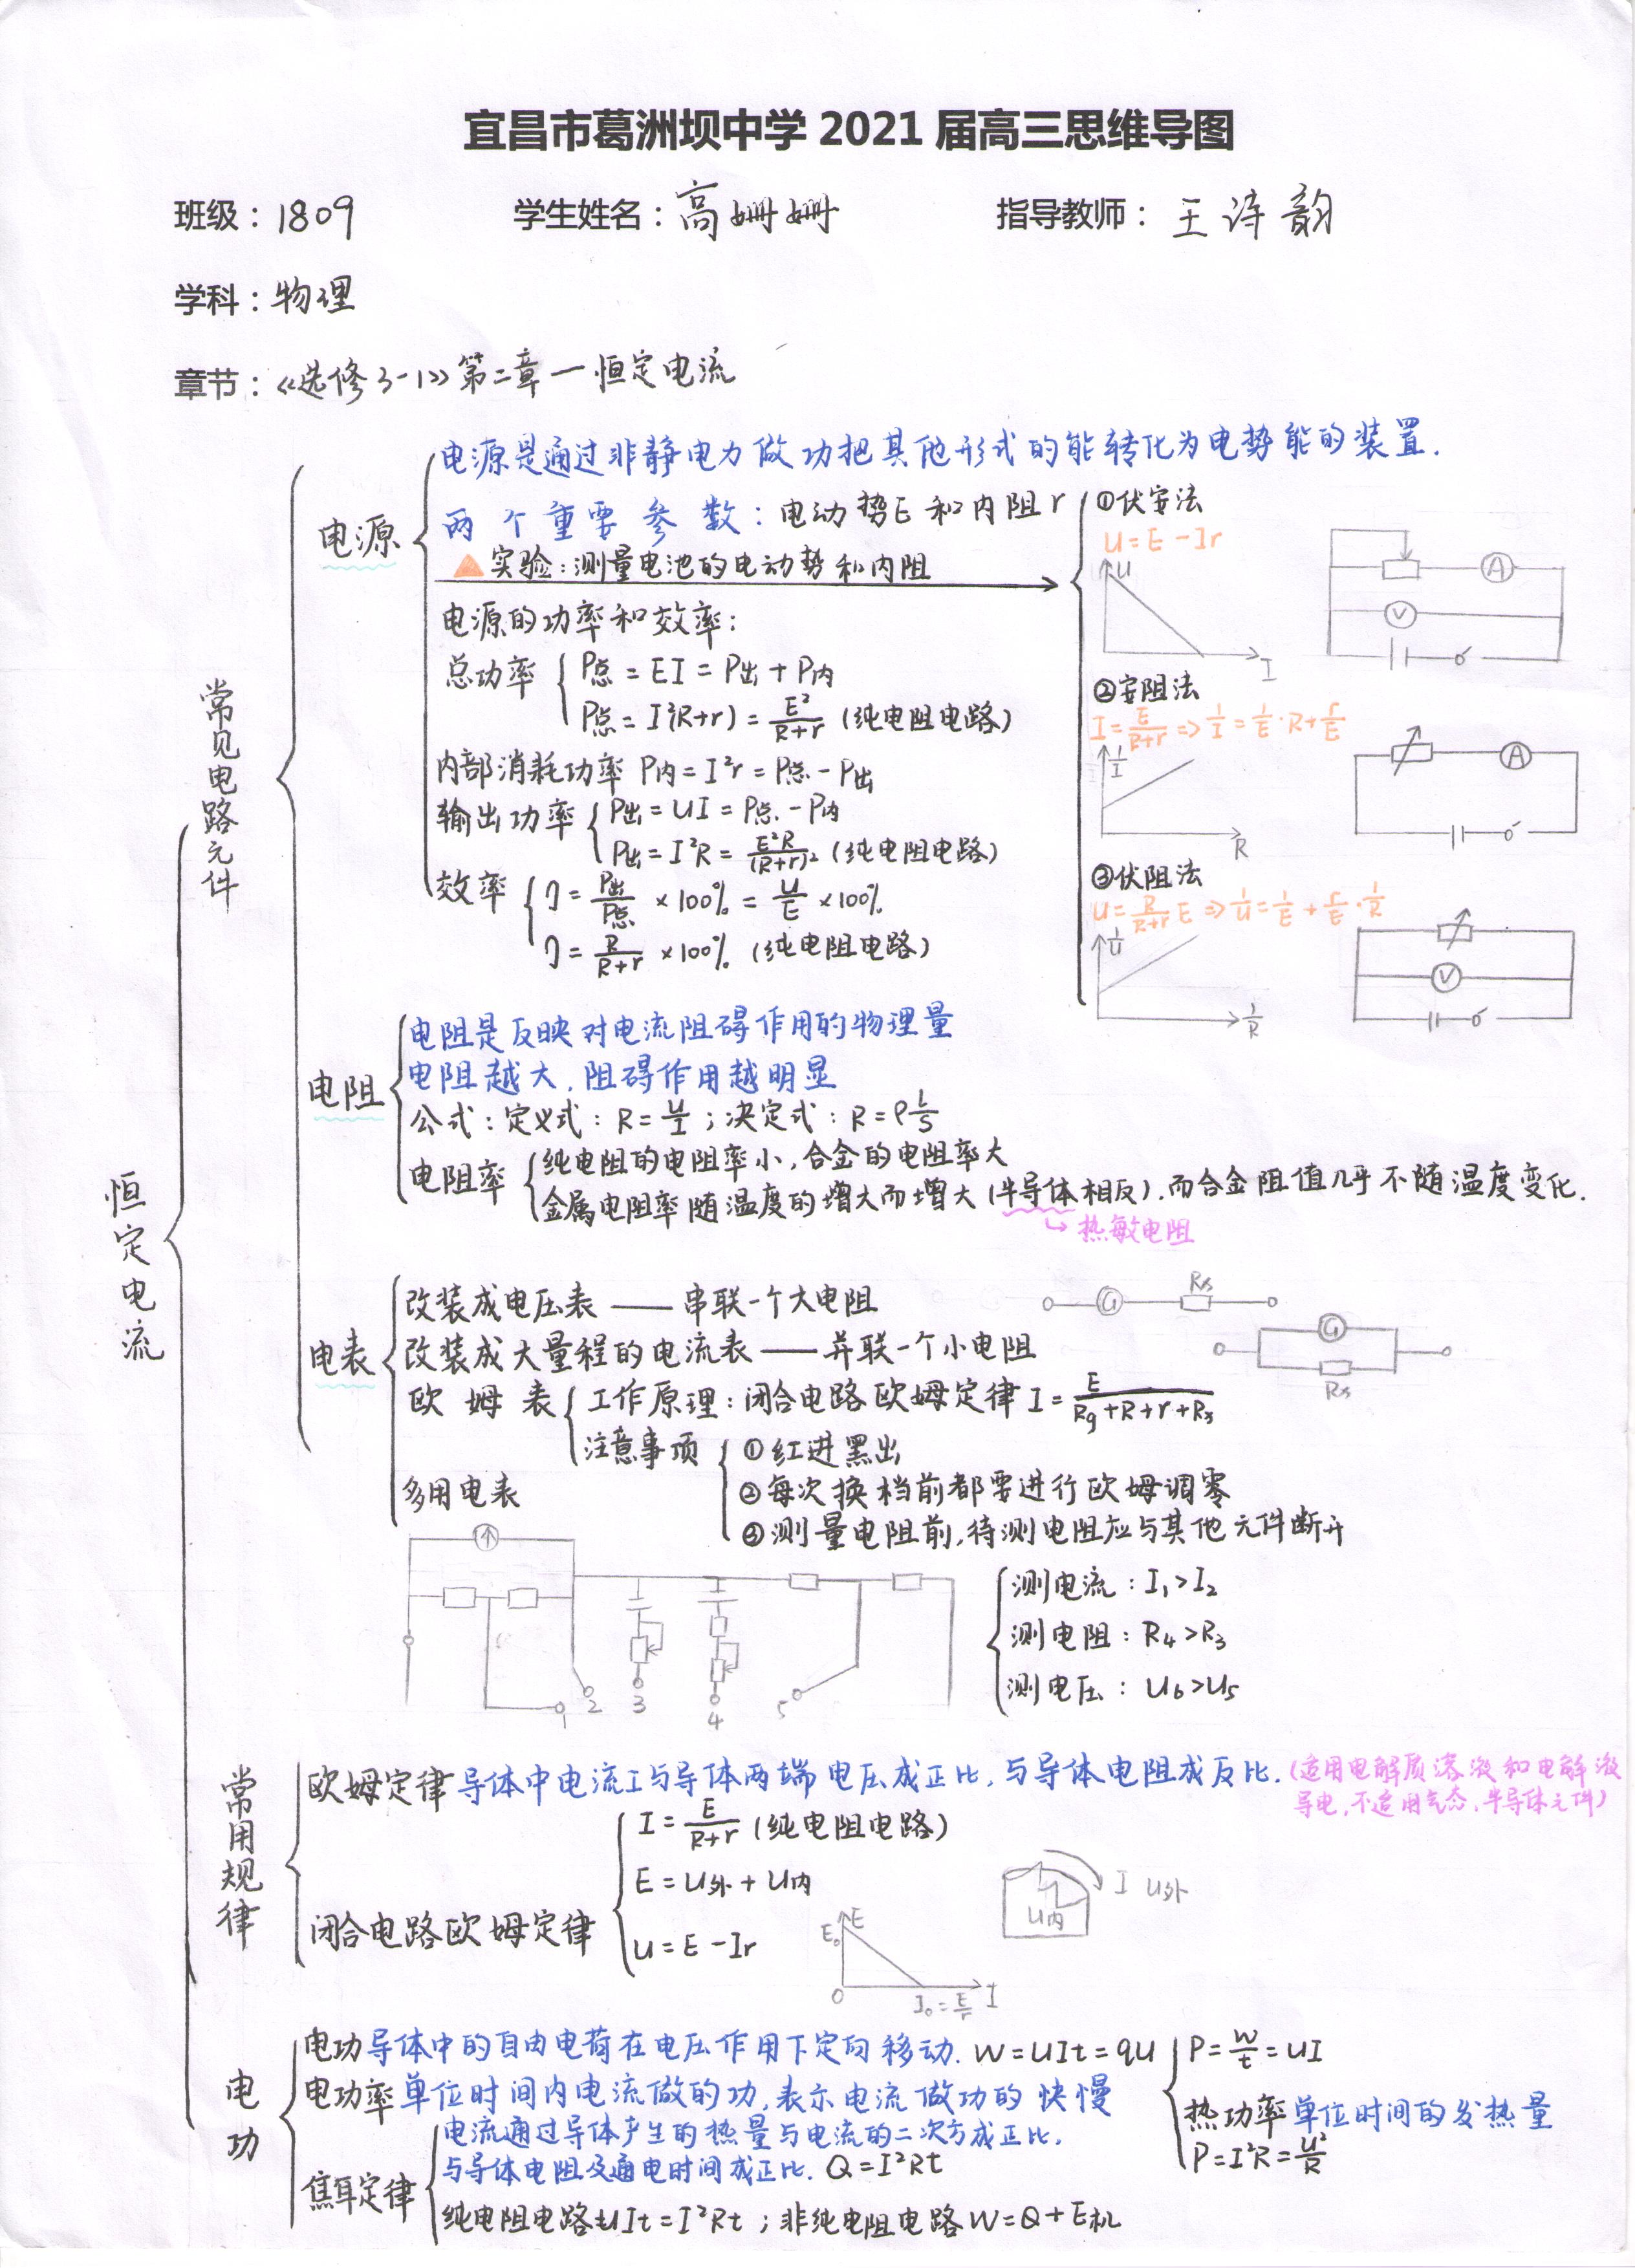 宜昌市葛洲坝中学 2021 届高三思维导图
班级：1809 学生姓名：高姗姗 指导教师：王诗韵
学科：物理
章节：《选修3-1》第二章—恒定电流
恒定电流
常见电路元件
电源
电源是通过非静电力做功把其他形式的能转化为电势能的装置.
两个重要参数：电动势E和内阻r
实验：测量电池的电动势和内阻
①伏安法
U=E-Ir
U
I
A
V
②安阻法
I=E/(R+r)⇒1/I=1/E·R+r/E
1/I
R
A
③伏阻法
U=R/(R+r)E⇒1/U=1/E+r/E·1/R
1/U
1/R
V
电源的功率和效率：
总功率
P总=EI=P出+P内
P总=I²(R+r)=E²/(R+r) (纯电阻电路)
内部消耗功率 P内=I²r=P总-P出
输出功率
P出=UI=P总-P内
P出=I²R=E²R/(R+r)² (纯电阻电路)
效率
η=P出/P总×100%=U/E×100%
η=R/(R+r)×100% (纯电阻电路)
电阻
电阻是反映对电流阻碍作用的物理量
电阻越大,阻碍作用越明显
公式：定义式：R=U/I；决定式：R=ρL/S
电阻率
纯电阻的电阻率小,合金的电阻率大
金属电阻率随温度的增大而增大(半导体相反).而合金阻值几乎不随温度变化.
↳热敏电阻
电表
改装成电压表——串联一个大电阻
G Rs
改装成大量程的电流表——并联一个小电阻
G
Rs
欧姆表
工作原理：闭合电路欧姆定律 I=E/(Rg+R+r+Rs)
注意事项
①红进黑出
②每次换档前都要进行欧姆调零
③测量电阻前,待测电阻应与其他元件断开
多用电表
1 2 3 4 5
测电流：I₁>I₂
测电阻：R₄>R₃
测电压：U₆>U₅
常用规律
欧姆定律 导体中电流I与导体两端电压成正比,与导体电阻成反比.(适用电解质溶液和电解液
导电,不适用气态,半导体元件)
闭合电路欧姆定律
I=E/(R+r) (纯电阻电路)
E=U外+U内
U=E-Ir
E
E₀
O
I₀=E/r
I
I U外
U内
电功
电功 导体中的自由电荷在电压作用下定向移动. W=UIt=qU
电功率 单位时间内电流做的功,表示电流做功的快慢
P=W/t=UI
热功率 单位时间的发热量
P=I²R=U²/R
焦耳定律
电流通过导体产生的热量与电流的二次方成正比,
与导体电阻及通电时间成正比. Q=I²Rt
纯电阻电路UIt=I²Rt；非纯电阻电路W=Q+E机